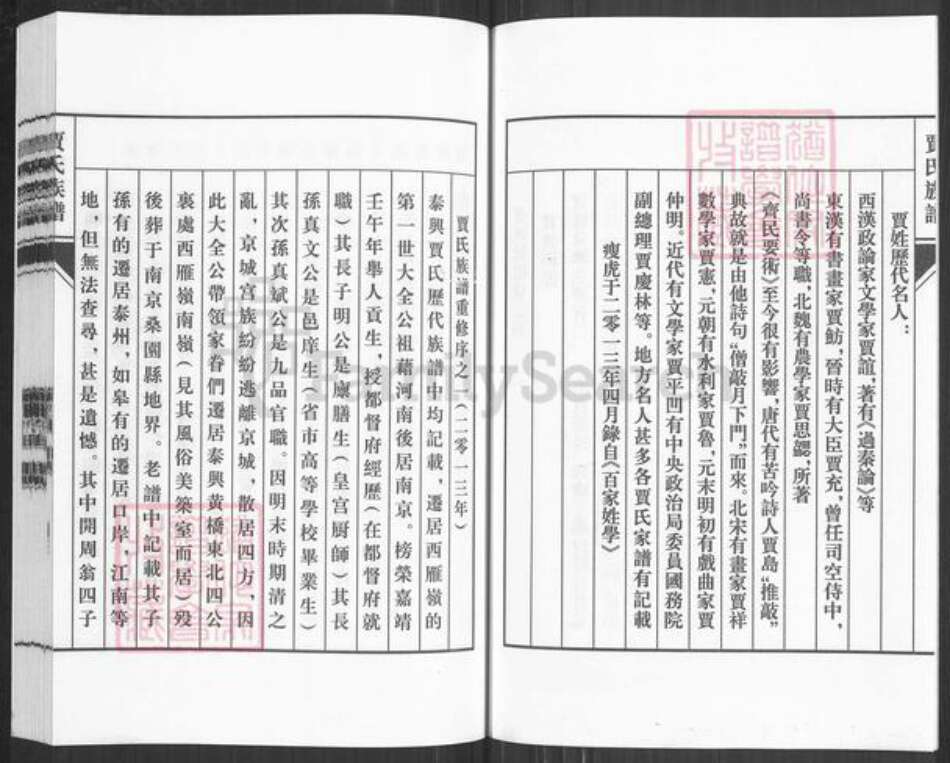 賈氏族譜
賈姓歷代名人：
西漢政論家文學家賈誼，著有《過秦論》等
東漢有書畫家賈魴，晉時有大臣賈充，曾任司空侍中，
尚書令等職，北魏有農學家賈思勰，所著
《齊民要術》至今很有影響，唐代有苦吟詩人賈島“推敲”
典故就是由他詩句“僧敲月下門”而來。北宋有畫家賈祥
數學家賈憲，元朝有水利家賈魯，元末明初有戲曲家賈
仲明。近代有文學家賈平凹有中央政治局委員國務院
副總理賈慶林等。地方名人甚多各賈氏家譜有記載
瘦虎于二零一三年四月錄自《百家姓學》
賈氏族譜重修序之一（二零一三年）
泰興賈氏歷代族譜中均記載，遷居西雁嶺的
第一世大全公祖藉河南後居南京。榜榮嘉靖
壬午年舉人貢生，授都督府經歷（在都督府就
職）其長子明公是廩膳生（皇宮厨師）其長
孫真文公是邑庠生（省市高等學校畢業生）
其次孫真斌公是九品官職。因明末時期清之
亂，京城宮族紛紛逃離京城，散居四方，因
此大全公帶領家眷們遷居泰興黃橋東北四公
裏處西雁嶺南嶺（見其風俗美築室而居）歿
後葬于南京桑園縣地界。老譜中記載其子
孫有的遷居泰州，如皋有的遷居口岸，江南等
地但無法查尋，甚是遺憾。其中開周翁四子
賈氏族譜
FamilySearch